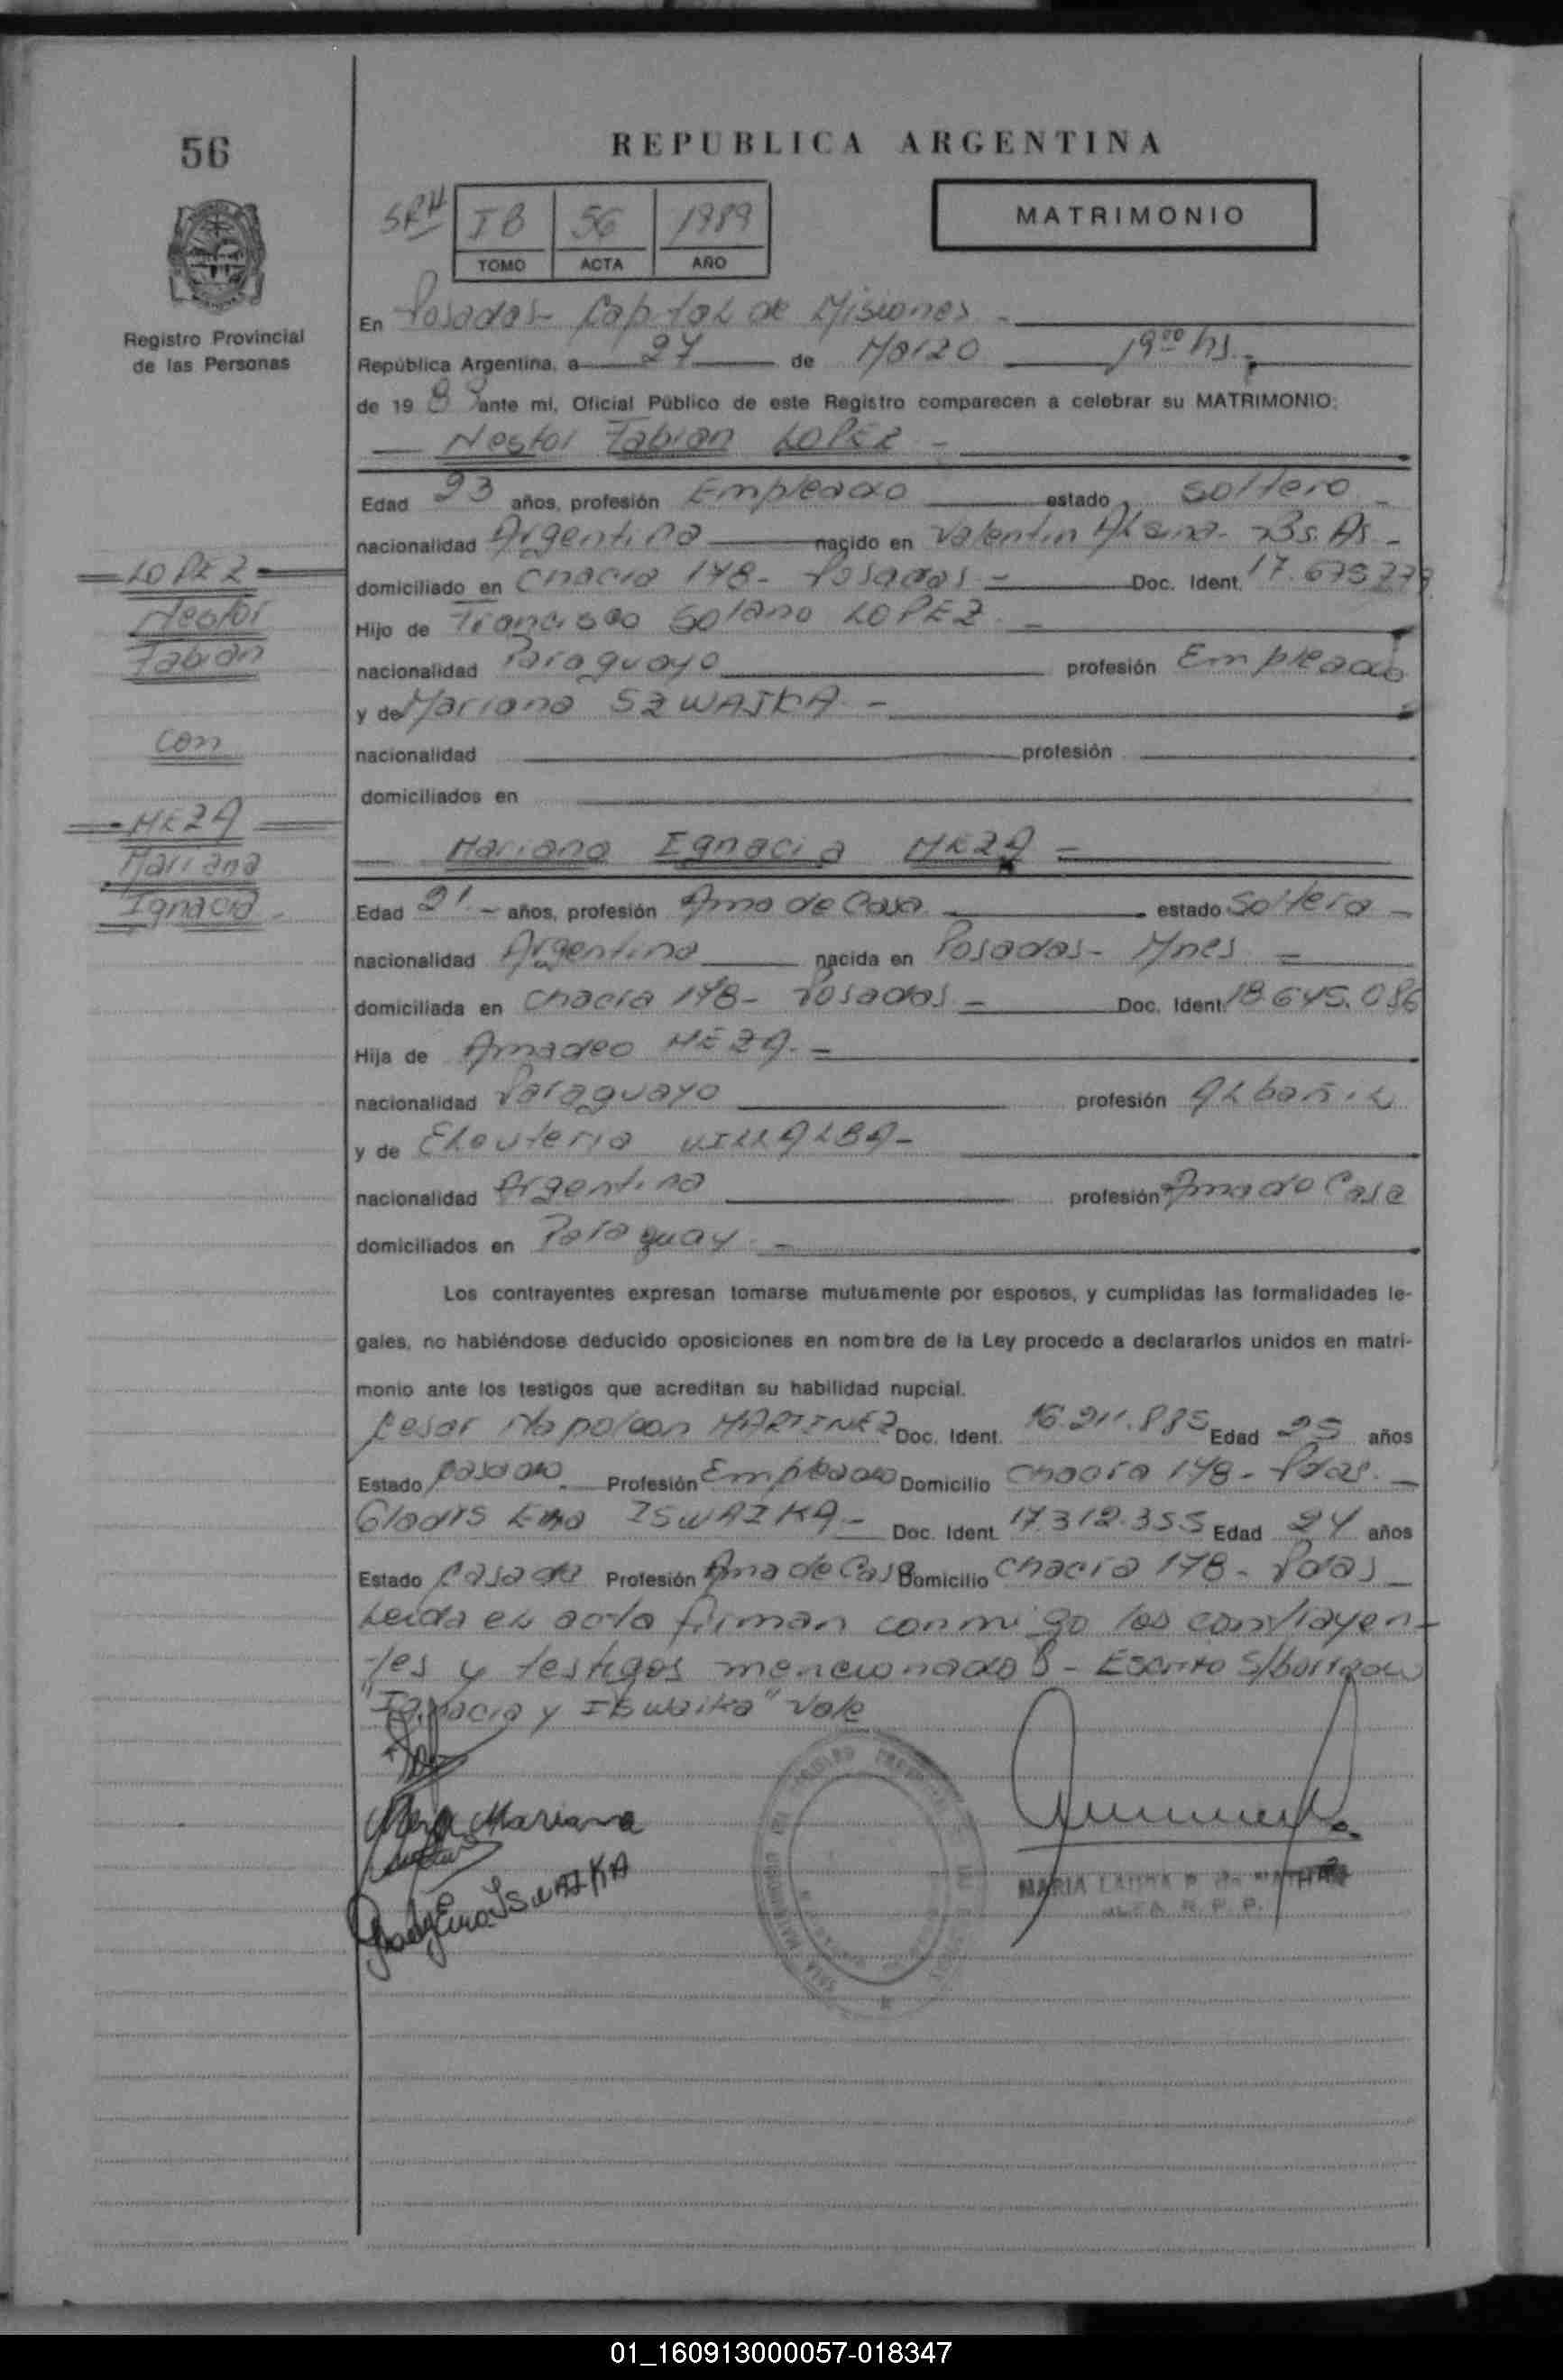 56
REPUBLICA ARGENTINA
IB 56 1989
TOMO ACTA AÑO
MATRIMONIO
Registro Provincial
de las Personas
En Posadas- Capital de Misiones -
República Argentina, a 27 de Marzo 19 00 hs.-
de 19 89 ante mi, Oficial Público de este Registro comparecen a celebrar su MATRIMONIO:
Nestor Fabian LOPEZ -
Edad 23 años, profesión Empleado estado soltero -
nacionalidad Argentina nacido en Valentin Alsina- Bs. As -
domiciliado en Chacra 148- Posadas - Doc. Ident. 17.675.279
Hijo de Francisco Solano LOPEZ. -
nacionalidad Paraguayo profesión Empleado
y de Mariana SZWAJKA. -
nacionalidad profesión
domiciliados en
LOPEZ
Nestor
Fabian
con
MEZA
Mariana
Ignacia -
Mariana Ignacia MEZA =
Edad 21 - años, profesión Ama de Casa estado Soltera -
nacionalidad Argentina nacida en Posadas- Mnes =
domiciliada en Chacra 148- Posadas - Doc. Ident. 18.645.086
Hija de Amadeo MEZA. =
nacionalidad Paraguayo profesión Albañil
y de Eleuteria VILLALBA-
nacionalidad Argentina profesión Ama de Casa
domiciliados en Paraguay. -
Los contrayentes expresan tomarse mutuamente por esposos, y cumplidas las formalidades le-
gales, no habiéndose deducido oposiciones en nombre de la Ley procedo a declararlos unidos en matri-
monio ante los testigos que acreditan su habilidad nupcial.
Cesar Napoleon MARTINEZ Doc. Ident. 16.211.885 Edad 25 años
Estado Casado. Profesión Empleado Domicilio Chacra 148- Pdas. -
Gladis Ema ISWAIKA- Doc. Ident. 17.312.355 Edad 24 años
Estado Casada Profesión Ama de Casa Domicilio Chacra 148- Pdas -
Leida el acta firman conmigo los contrayen-
tes y testigos mencionados - Escrito s/borrado
"Ignacia y Iswaika" Vale
Meza Mariana
ISWAIKA
MARIA LAURA
R. P. P.
01_160913000057-018347